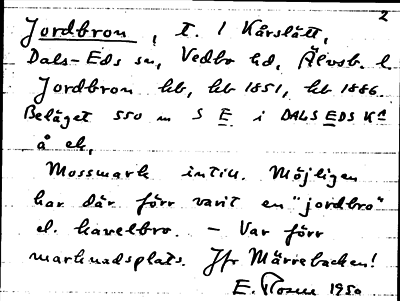 2
Jordbron, t. 1 Kårslätt,
Dals-Eds sn, Vedbo hd, Älvsb. l.
Jordbron hb, hb 1851, hb 1886.
Beläget 550 m S E. i DALS EDS Ka
å ek.
Mossmark intill. Möjligen
har där förr varit en "jordbro"
el. kavelbro. – Var förr
marknadsplats. Jfr Märrebacken!
E. Rosen 1950